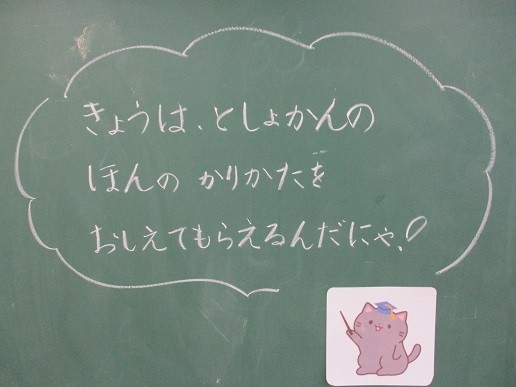 きょうは、としょかんの
ほんの かりかたを
おしえてもらえるんだにゃ！